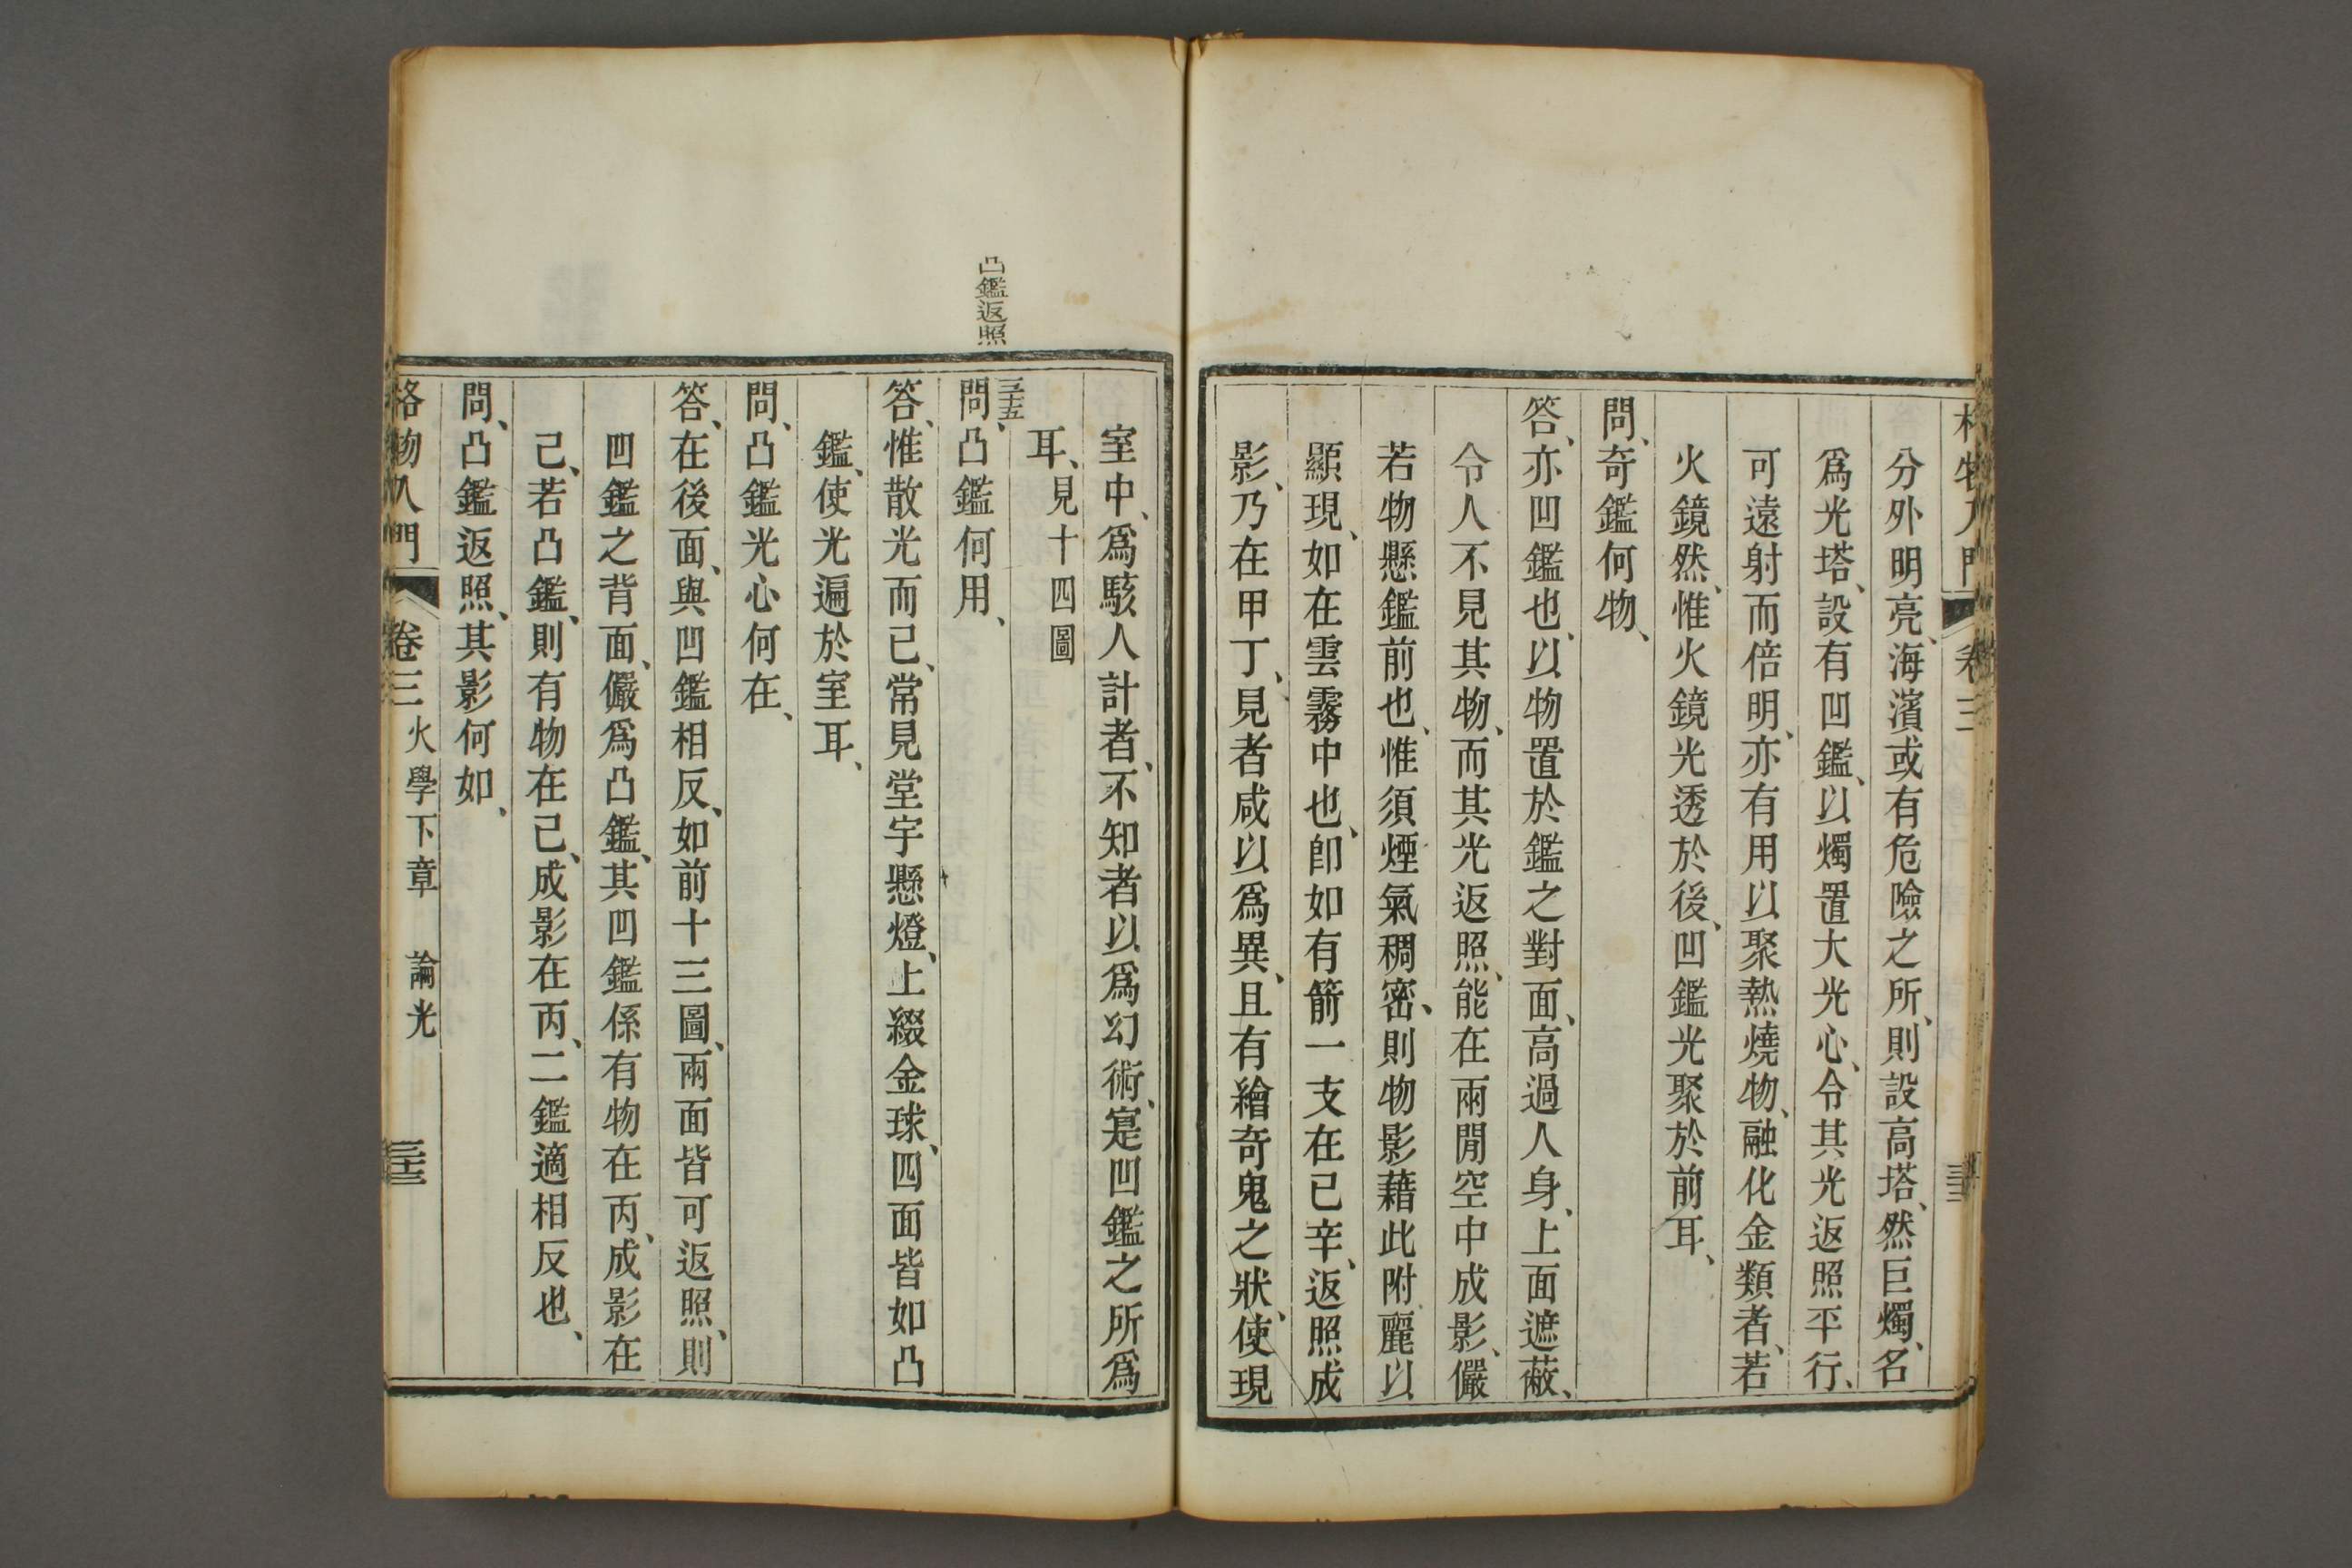 格物入門 卷三
分外明亮、海濱或有危險之所、則設高塔、然巨燭、名
爲光塔、設有凹鑑、以燭置大光心、令其光返照平行、
可遠射而倍明、亦有用以聚熱燒物、融化金類者、若
火鏡然、惟火鏡光透於後、凹鑑光聚於前耳、
問、奇鑑何物、
答、亦凹鑑也、以物置於鑑之對面、高過人身、上面遮蔽、
令人不見其物、而其光返照、能在兩閒空中成影、儼
若物懸鑑前也、惟須煙氣稠密、則物影藉此附麗以
顯現、如在雲霧中也、卽如有箭一支在己辛、返照成
影、乃在甲丁、見者咸以爲異、且有繪奇鬼之狀、使現
室中、爲駭人計者、不知者以爲幻術、寔凹鑑之所爲
耳、見十四圖
凸鑑返照
三十五
問、凸鑑何用、
答、惟散光而已、常見堂宇懸燈、上綴金球、四面皆如凸
鑑、使光遍於室耳、
問、凸鑑光心何在、
答、在後面、與凹鑑相反、如前十三圖、兩面皆可返照、則
凹鑑之背面、儼爲凸鑑、其凹鑑係有物在丙、成影在
己、若凸鑑、則有物在己、成影在丙、二鑑適相反也、
問、凸鑑返照、其影何如、
格物入門 卷三 火學下章 論光 三十三